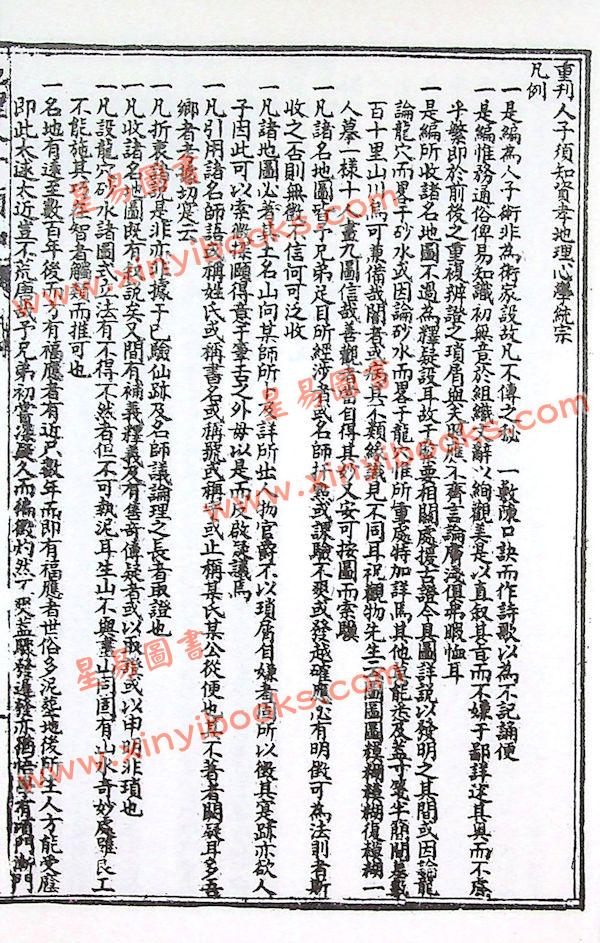 重刊人子須知資孝地理心學統宗
凡例
一是編為人子術非為術家設故凡不傳之秘一敷陳口訣而作詩歌以為不記誦便
一是編惟務通俗俾易知識初無意於組織文辭以絢觀美是以直叙其言而不嫌于鄙詳述其奧而不慮
乎繁即於前後之重複辨證之瑣屑與夫照應不齊言論膚淺俱弗暇恤耳
一是編所收諸名地圖不過為釋疑設耳故于緊要相關處援古證今具圖詳說以發明之其間或因論龍
論龍穴而畧于砂水或因論砂水而畧于龍穴惟所重處特加詳焉其他莫能悉及盖寸楮半簡間
百十里山川焉可兼備哉閱者或病其不類統識見不同耳祝觀物先生云圖圖圖模糊糢糊復模糊一
人摹一樣十人畫九圖信哉善觀者當自得其妙又安可按圖而索驥
一凡諸名地圖皆予兄弟足目所經涉者或名師折衷或課驗不爽或發越確應必有明徵可為法則者斯
收之否則無徵不信何可泛收
一凡諸地圖必著其土名山向某師所下及詳所出人物官爵不以瑣屑自嫌者固所以徵其寔跡亦欲人
子因此可以索 頗得意于書言之外毋以是而反啟 議焉
一凡引用諸名師語或稱姓氏或稱書名或稱號或稱字或止稱某氏某公從便也其不著者闕疑耳多吾
鄉者耆 切寔云
一凡折衷 是非亦非據于己驗仙跡及名師議論理之長者取證也
一凡收諸名地圖既有叙說矣又間有補義釋義及有售奇傳疑者或以取證或以申明非瑣也
一凡設龍穴砂水諸圖式 法有不得不然者但不可執泥耳生山不與畫山同固有山水奇妙處雖良工
不能施其巧在智者觸類而推可也
一名地有遠至數百年後而才有福應者有近只數年而即有福應者世俗多泥葬地後所生人方能受蔭
即此太遠太近豈不荒唐哉予兄弟初嘗 疑久而徧徵灼然不爽盖驟發遲發亦 有